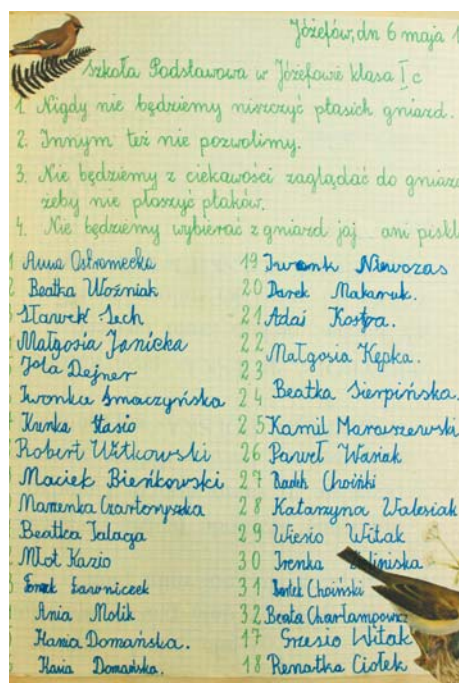 Józefów, dn 6 maja 1
Szkoła Podstawowa w Józefowie klasa I c
1. Nigdy nie będziemy niszczyć ptasich gniazd.
2. Innym też nie pozwolimy.
3. Nie będziemy z ciekawości zaglądać do gniazd
żeby nie płoszyć ptaków.
4. Nie będziemy wybierać z gniazd jaj ani piskl
Anna Ostromecka
Beatka Woźniak
Sławek Lech
Małgosia Janicka
Jola Dejner
Iwonka Smaczyńska
Kunka Stasio
Robert Witkowski
Maciek Bieńkowski
Marzenka Czartoryszka
Beatka Talaga
Młot Kazio
Ławniczek
Ania Molik
Hania Domańska.
Kasia Domańska.
19 Iwonk Niewczas
20 Darek Makaruk.
21 Adaś Kostra.
22
Małgosia Kępka.
23
24 Beatka Sierpińska.
25 Kamil Maruszewski
26 Paweł Wasiak
27 Radek Choiński
28 Katarzyna Walesiak
29 Wiesio Witak
30 Irenka
31 Choiński
32 Beata Charłampowicz
17 Grzesio Witak
18 Renatka Ciołek